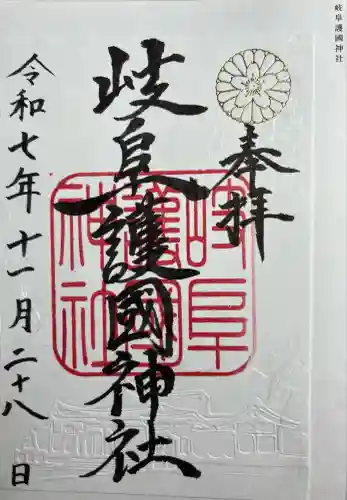 岐阜護國神社
奉拝
岐阜護國神社
岐阜護國神社
令和七年十一月二十八日